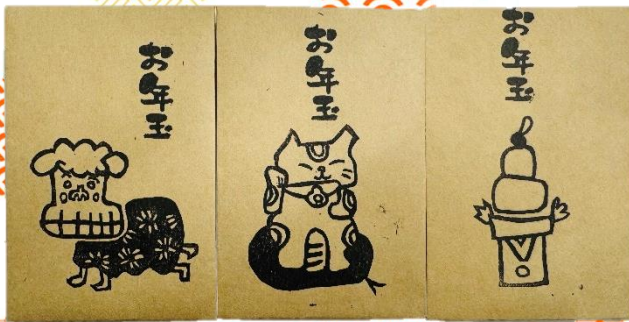 お年玉
お年玉
お年玉